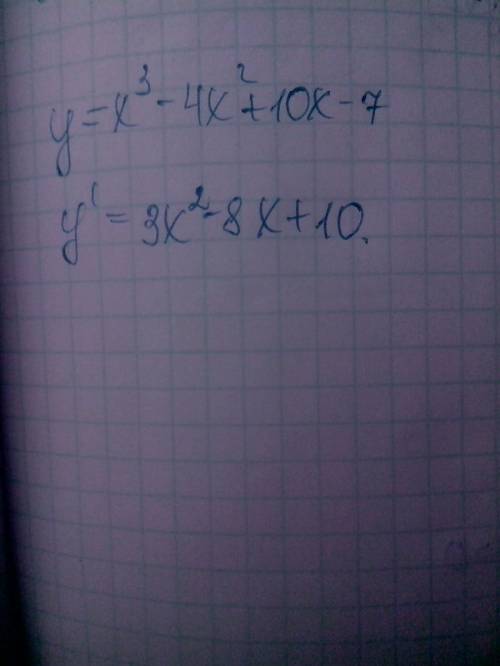 y = x³ - 4x² + 10x - 7
y' = 3x² - 8x + 10.